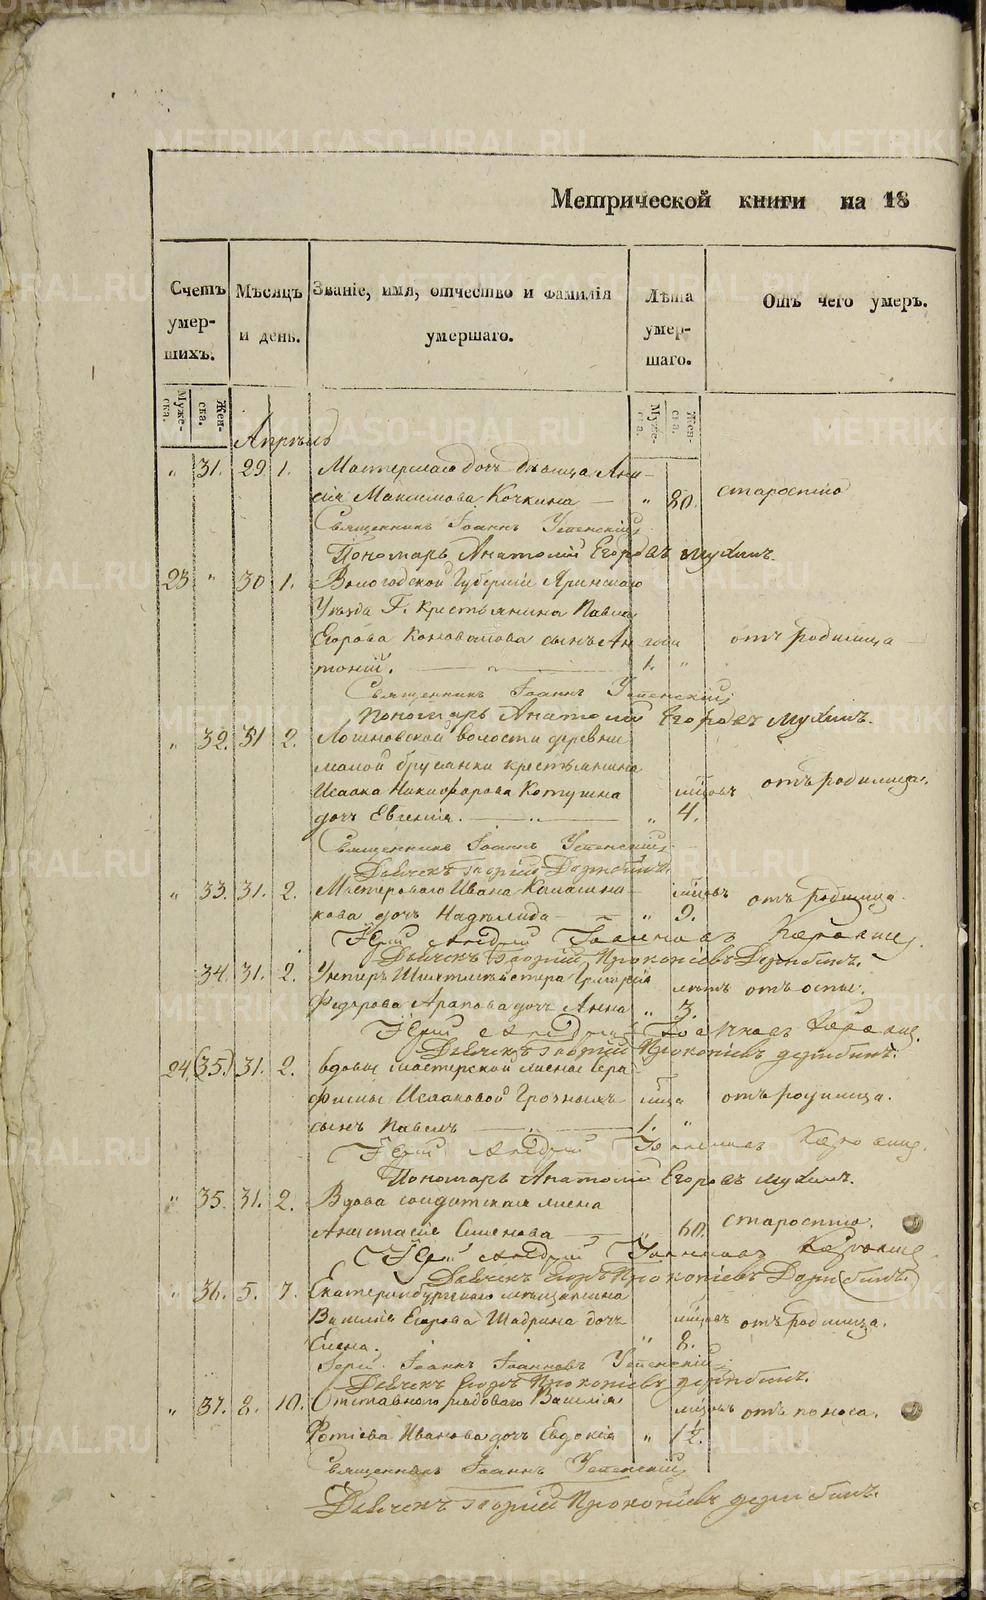 METRIKI.GASO-URAL.RU
Метрической книги на 18
Счетъ умер-шихъ.
Мѣсяцъ и день.
Званіе, имя, отчество и фамилія умершаго.
Лѣта умер-шаго.
Отъ чего умеръ.
Муже-ска.
Жен-ска.
Муже-ска.
Жен-ска.
Апрѣль
" 31. 29 1. Мастерскаго дочь дѣвица Ани-
сія Максимова Кочкина — " 80. старостію
Священникъ Іоаннъ Успенскій
Пономарь Анатолий Егоровъ Мухинъ.
23 " 30 1. Вологодской Губерніи Яринскаго
Уѣзда Г. Крестьянина Павла
Егорова Коновалова сынъ Ан года отъ родимца
тоній. — " — 1. "
Священникъ Іоаннъ Успенскій
Пономарь Анатолий Егоровъ Мухинъ.
" 32. 31 2. Логиновской волости деревни
малой брусянки крестьянина
Исаака Никифорова Котушна мѣсѧцовъ отъ родимца.
дочь Евгенія. — " — " 4.
Священникъ Іоаннъ Успенскій
Дьячекъ Георгій Дерябинъ.
" 33. 31. 2. Мастероваго Ивана Калашни- мѣсяцовъ отъ родимца.
кова дочь Надежда — " 9.
Іерей Андрей Іоанновъ
Дьячекъ Георгій Прокопіевъ Дерябинъ.
34. 31. 2. Унтеръ Шихтмейстера Григорія лѣтъ отъ оспы.
Федорова Арапова дочь Анна " 3.
Іерей Андрей Іоанновъ
Дьячекъ Георгій Прокопіевъ Дерябинъ.
24 (35.) 31. 2. вдовы мастерской жены Сера-
фимы Исааковой Грозныхъ мѣсяца отъ родимца.
сынъ Павелъ — " — 1. "
Іерей Андрей Іоанновъ
Пономарь Анатолий Егоровъ Мухинъ.
" 35. 31. 2. Вдова солдатская жена
Анастасія Семенова — " 60. старостію.
Іерей Андрей Іоанновъ
Дьячекъ Георг. Прокопіевъ Дерябинъ.
" 36. 5. 7. Екатеринбургскаго мѣщанина
Василія Егорова Шадрина дочь мѣсяцовъ отъ родимца.
Елена. " 8.
Іерей Іоаннъ Іоанновъ Успенскій
Дьячекъ Георг. Прокопіевъ Дерябинъ.
" 37. 8. 10. Отставнаго рядоваго Василія мѣсяцъ отъ поноса.
Фотіева Иванова дочь Евдокія " 1½.
Священникъ Іоаннъ Успенскій
Дьячекъ Георгій Прокопіевъ Дерябинъ.